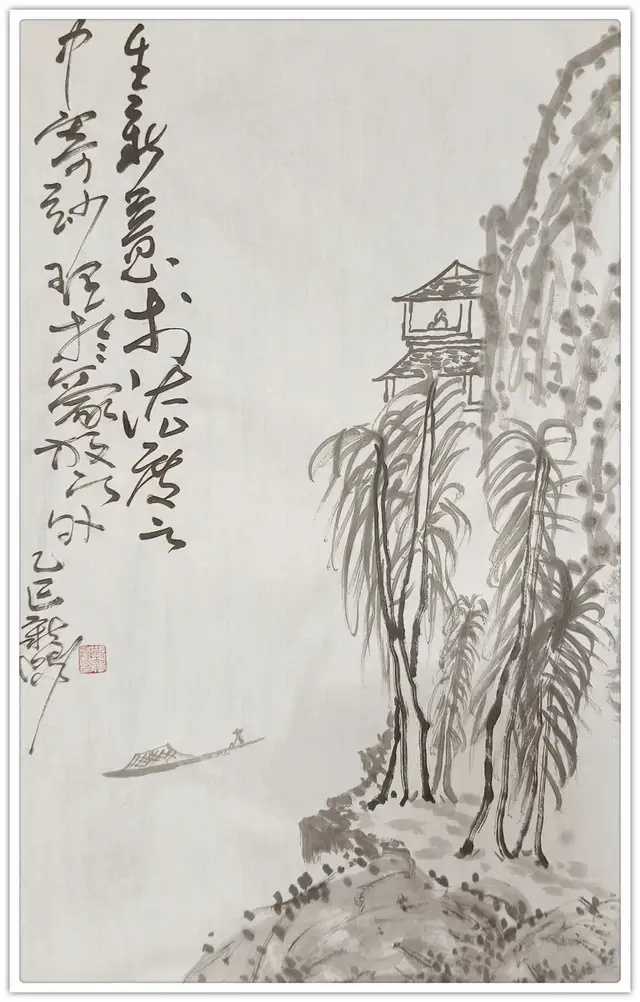 出新意於法度之
中寄妙理於豪放之外
乙巳新